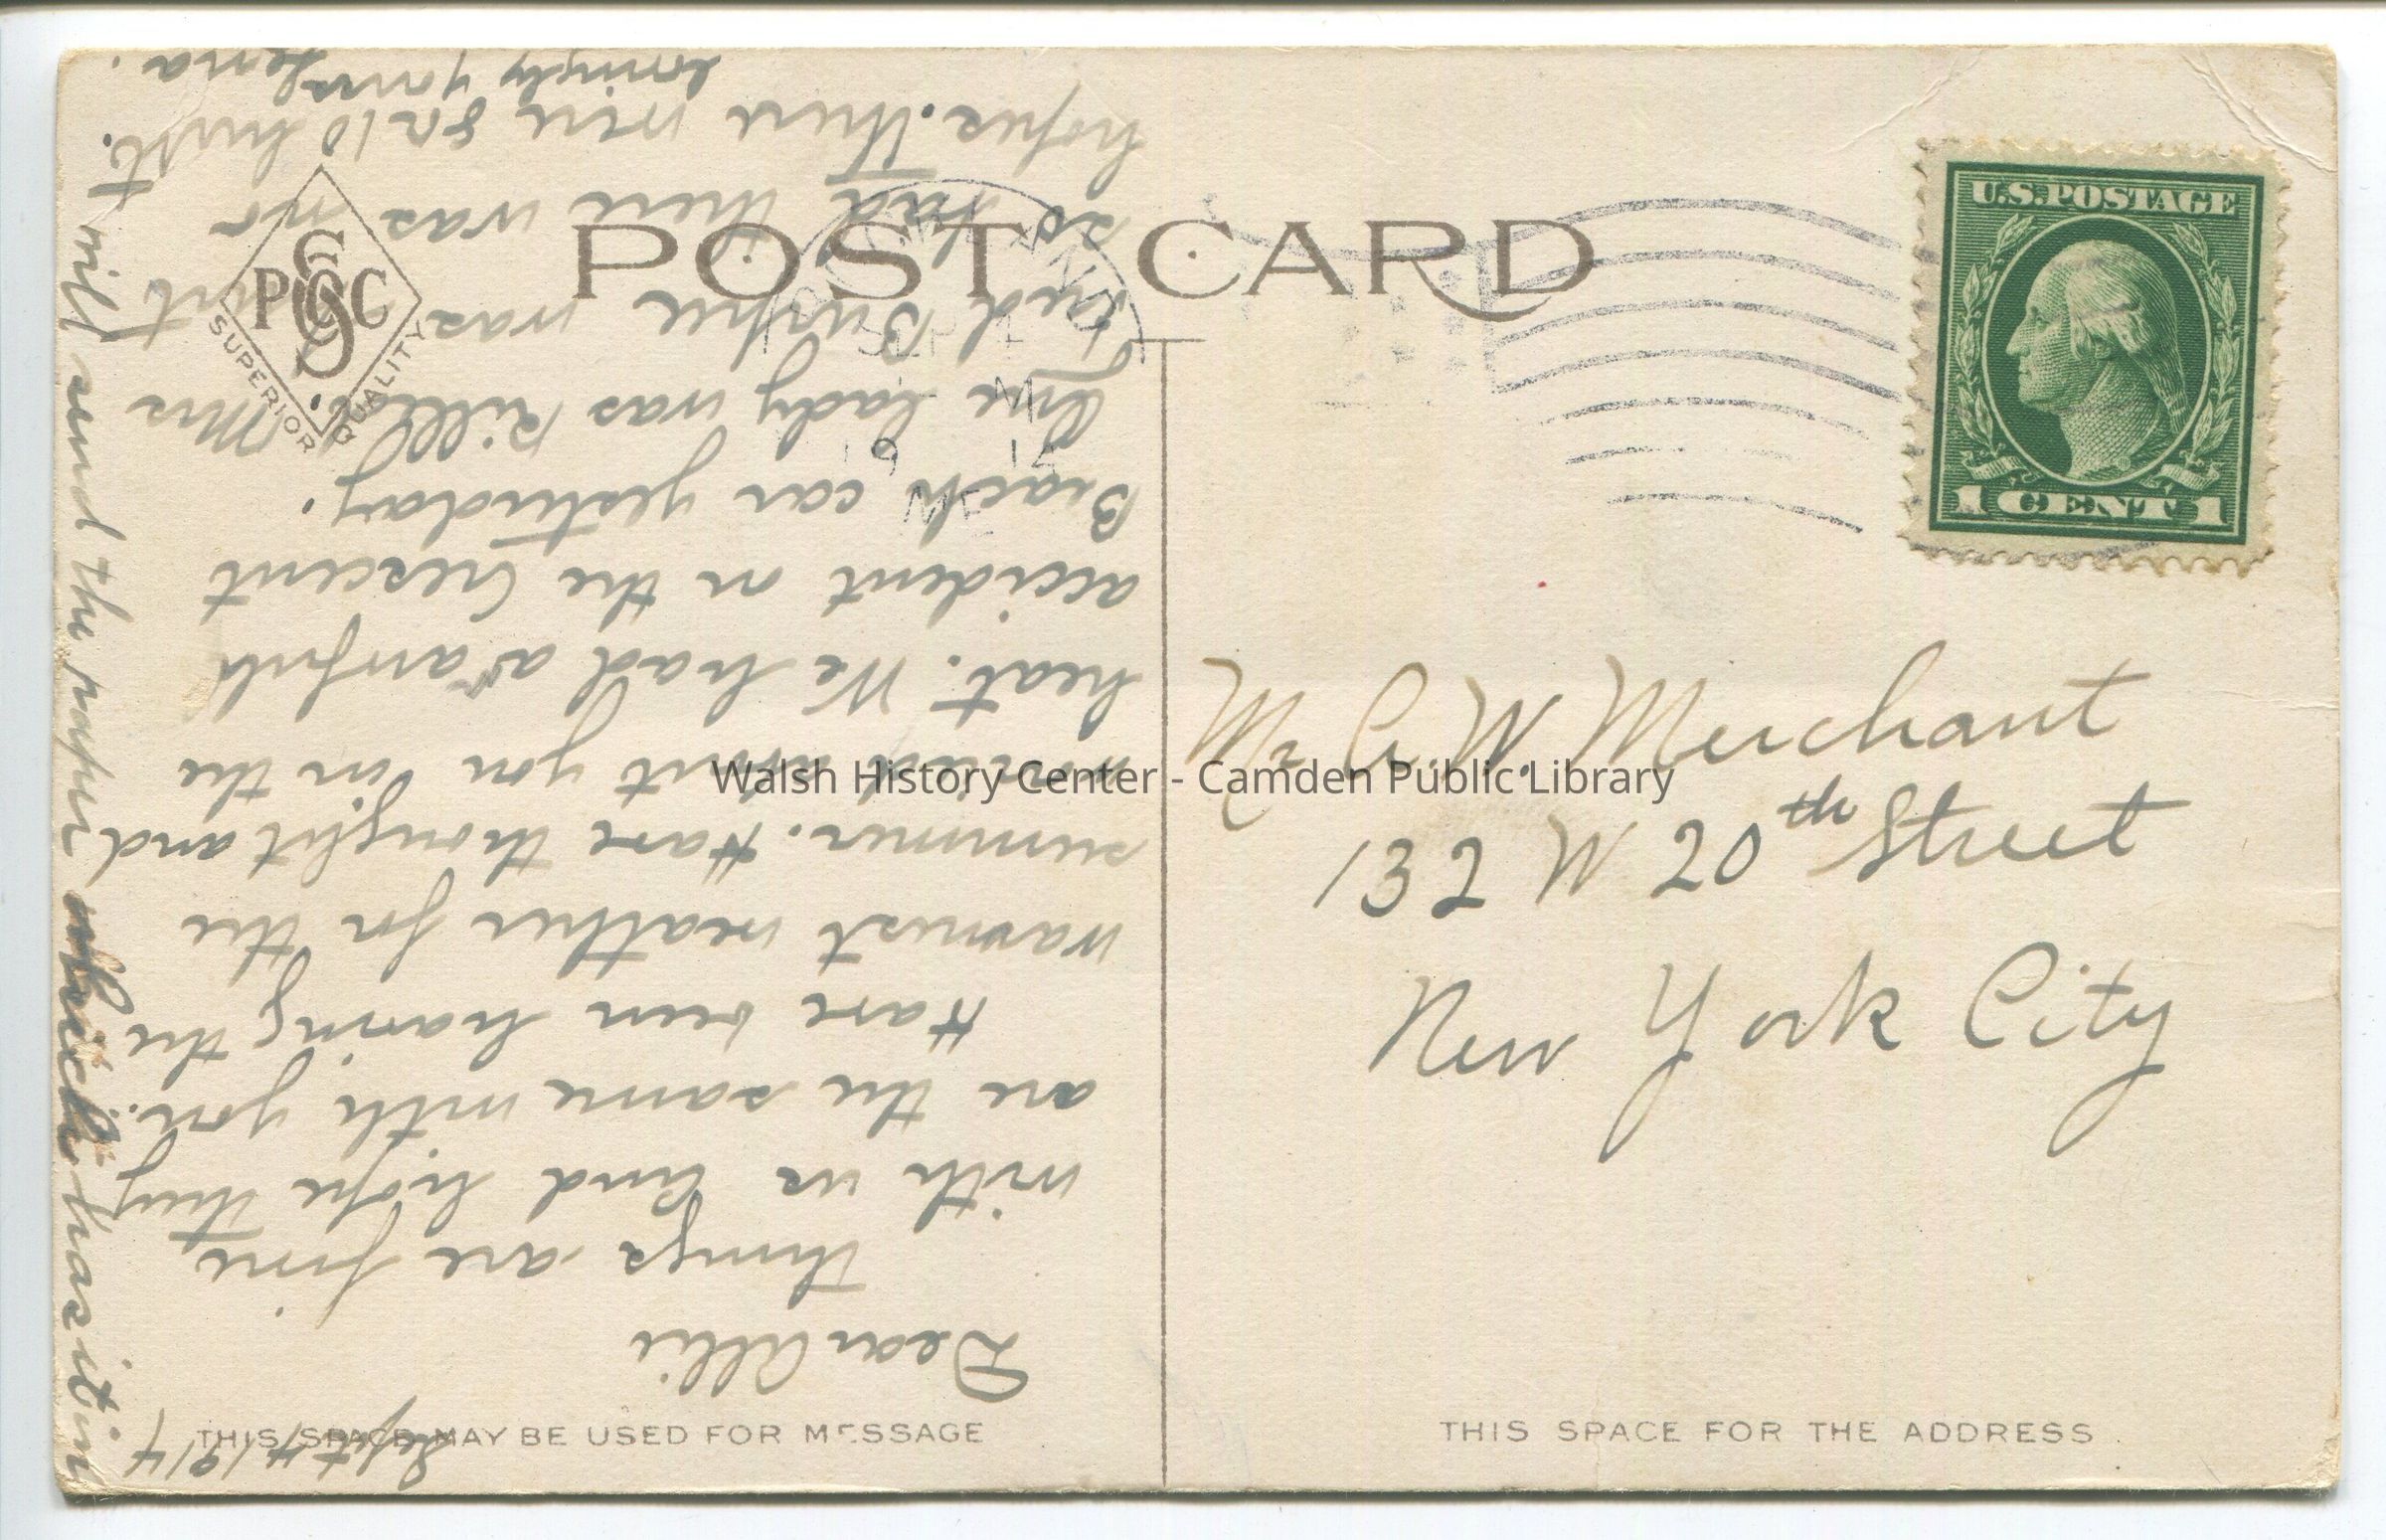 POST CARD
P C
SUPERIOR QUALITY
U.S. POSTAGE
1 CENT 1
SEP 4
M
19 14
ME
Sept 4 1914
Dear Allie
things are fine
with us and hope they
are the same with you.
Have been having the
warmest weather for the
summer. Have thought and
about you in the
heat. We had a awful
accident on the Crescent
Beach car yesterday.
One lady was killed. Mrs
Fred Burpee was hurt
so bad there was no
hopes. There were 8 or 10 hurt.
Lovingly yours
Lena.
I will send the paper which has it in
Mr A W Merchant
132 W 20th Street
New York City
THIS SPACE MAY BE USED FOR MESSAGE
THIS SPACE FOR THE ADDRESS
Walsh History Center - Camden Public Library